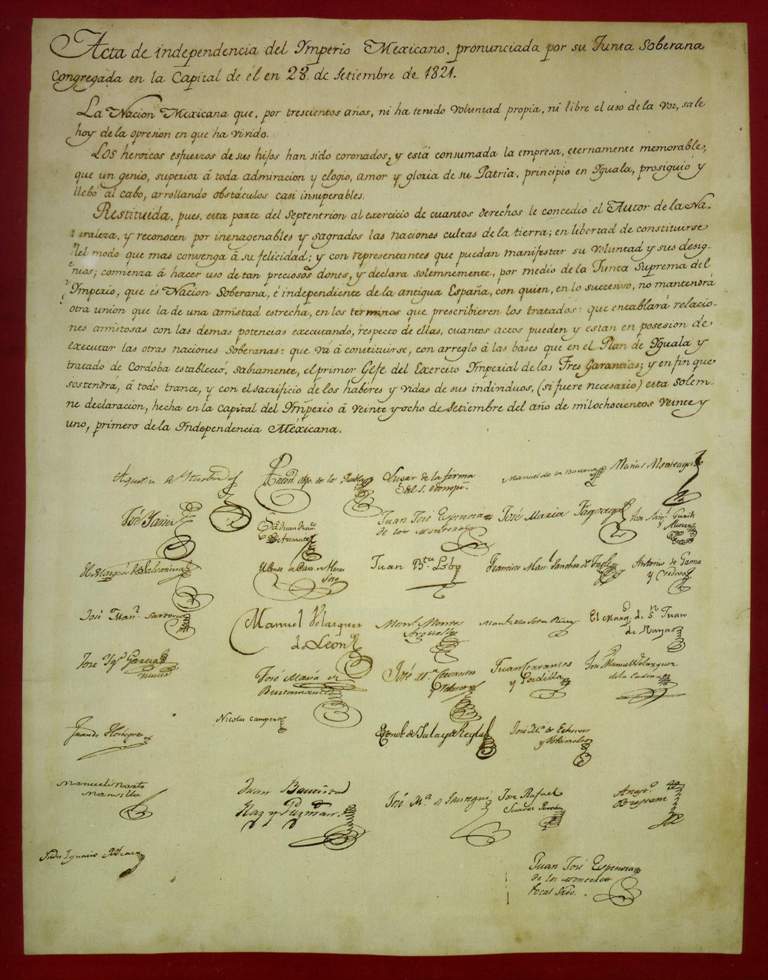 Acta de independencia del Ymperio Mexicano, pronunciada por su Junta Soberana
congregada en la Capital de él en 28 de Setiembre de 1821.
La Nacion Mexicana que, por trescientos años, ni ha tenido voluntad propia, ni libre el uso de la voz, sale
hoy de la opresion en que ha vivido.
Los heroicos esfuerzos de sus hijos han sido coronados, y está consumada la empresa, eternamente memorable,
que un genio, superior á toda admiracion y elogio, amor y gloria de su Patria, principió en Yguala, prosiguió y
llebó al cabo, arrollando obstáculos casi insuperables.
Restituida, pues, esta parte del Septentrion al exercicio de cuantos derechos le concedió el Autor de la Na-
turaleza, y reconocen por inenagenables y sagrados las naciones cultas de la tierra; en libertad de constituirse
del modo que mas convenga á su felicidad; y con representantes que puedan manifestar su voluntad y sus desig-
nios; comienza á hacer uso de tan preciosos dones, y declara solemnemente, por medio de la Junta Suprema del
Ymperio, que es Nacion Soberana, é independiente de la antigua España, con quien, en lo succesivo, no mantendrá
otra union que la de una amistad estrecha, en los terminos que prescribieren los tratados: que entablará relacio-
nes amistosas con las demas potencias executando, respecto de ellas, cuantos actos pueden y estan en posesion de
executar las otras naciones Soberanas: que vá á constituirse, con arreglo á las bases que en el Plan de Yguala y
tratado de Cordoba estableció, sabiamente, el primer Gefe del Exercito Imperial de las Tres Garantias; y en fin que
sostendrá, á todo trance, y con el sacrificio de los haberes y vidas de sus individuos, (si fuere necesario) esta solem-
ne declaracion, hecha en la Capital del Ymperio á veinte y ocho de Setiembre del año de mil ochocientos veinte y
uno, primero de la Independencia Mexicana.
Agustin de Yturbide
Lugar de la firma
Manuel de la Barcena
Matias Monteagudo
Juan José Espinosa
de los Monteros
José Maria Fagoaga
Juan Bta Lobo
Antonio de Gama
y Cordova
Manuel Velazquez
de Leon
Manuel Montes
Arguelles
El Marq. de S. Juan
de Rayas
José Maria de
Bustamante
Juan Cervantes
y Padilla
José Manuel Velazquez
de la Cadena
Juan de Horbegoso
Nicolas Campero
José Ma. de Echevers
y Valdivielso
Manuel Martinez
Mansilla
Juan Bautista
Raz y Guzman
José Ma. de Jauregui
José Rafael
Suarez Pereda
Juan José Espinosa
de los Monteros
Vocal Srio.